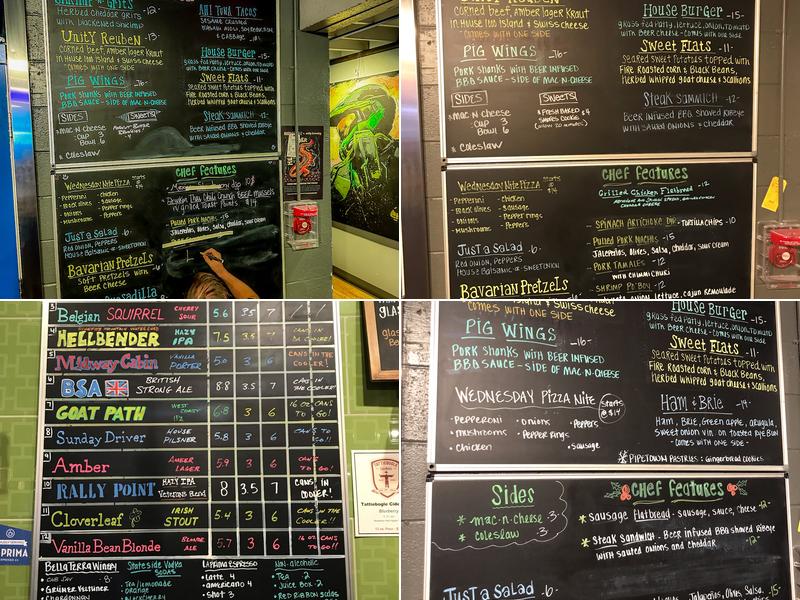 Shrimp & Grits
Herbed cheddar grits -12-
with blackened shrimp
Unity Reuben -13-
corned beef, amber lager kraut
in House 1000 Island & Swiss cheese
-comes with one side
Pig Wings -16-
Pork shanks with BEER INFUSED
BBQ SAUCE - SIDE OF MAC-N-CHEESE
SIDES
*mac n cheese
cup 3
Bowl 6
* coleslaw
SWEETS
AHI TUNA TACOS
SESAME CRUSTED
& CABBAGE
House Burger -15-
grass fed Patty, lettuce, onion, tomato
with Beer cheese - comes with one side
Sweet Flats -11-
seared sweet potatoes topped with
Fire Roasted corn & Black Beans,
Herbed whipped goat cheese & scallions
Steak Sammich -12-
Beer infused BBQ shaved Ribeye
with sauted onions & cheddar
Chef Features
Wednesday Nite Pizza Starts @ $14
· Pepperoni · chicken
· Bacon · Sausage
· onions · Pepper rings
· Mushrooms · Peppers
Just a Salad -6-
Red onion, Peppers
House Balsamic or sweet onion
Bavarian Pretzels
soft pretzels with
Beer cheese
Quesadilla
Pulled Pork Nachos -15
Jalapeños, olives, Salsa, cheddar, sour cream
corned beef, amber lager kraut
in House 1000 Island & Swiss cheese
-comes with one side
PIG WINGS -16-
Pork shanks with BEER INFUSED
BBQ SAUCE - SIDE OF MAC-N-CHEESE
SIDES
*mac n cheese
cup 3
Bowl 6
* coleslaw
SWEETS
* FRESH BAKED $4
House Burger -15-
grass fed Patty, lettuce, onion, tomato
with Beer cheese - comes with one side
Sweet Flats -11-
seared sweet potatoes topped with
Fire Roasted corn & Black Beans,
Herbed whipped goat cheese & scallions
Steak Sammich -12-
Beer infused BBQ shaved Ribeye
with sauted onions & cheddar
Chef Features
Wednesday Nite Pizza Starts @ $14
· Pepperoni · chicken
· Bacon · Sausage
· onions · Pepper rings
· Mushrooms · Peppers
Just a Salad -6-
Red onion, Peppers
House Balsamic or sweet onion
Bavarian Pretzels
Grilled Chicken Flatbread -12
- SPINACH ARTICHOKE DIP - TORTILLA CHIPS -10
- Pulled Pork Nachos -15
Jalapeños, olives, Salsa, cheddar, sour cream
- PORK TAMALES -12
WITH CHIMICHURRI
- SHRIMP Po'Boy -12
lettuce, cajun remoulade
3 Belgian SQUIRREL CHERRY SOUR 5.6 3.5 7
4 HELLBENDER HAZY IPA 7.5 3.5 7 CANS IN DA COOLER!
5 Midway Cabin VANILLA PORTER 5.0 3 6 CANS IN THE COOLER!
6 BSA BRITISH STRONG ALE 8.8 3.5 7 CANS IN THE COOLER!
7 GOAT PATH WEST COAST IPA 6.8 3 6 16 OZ CANS TO GO!
8 Sunday Driver HOUSE PILSNER 5.8 3 6 CANS TO GO!!
9 Amber AMBER LAGER 5.9 3 6 CANS TO GO!
10 RALLY POINT HAZY IPA Veterans Blend 8 3.5 7 CANS IN COOLER!
11 Cloverleaf IRISH STOUT 5.4 3 6 CANS IN THE COOLER!!
12 Vanilla Bean Blonde BLONDE ALE 5.7 3 6 16 OZ CANS TO GO!!
BellaTerra Winery
Gruner Veltliner
Chardonnay
Stateside Vodka SODAS
· Tea/lemonade
· orange
· BLACKCHERRY
LAPRIMA ESPRESSO
· Latte 4
· americano 4
· shot 3
NON-alcoholic
· Tea 2
· Juice Box 2
· RED RIBBON sodas
PRIMA
comes with one side
PIG WINGS -16-
Pork shanks with BEER INFUSED
BBQ SAUCE - SIDE OF MAC-N-CHEESE
WEDNESDAY PIZZA NITE Starts @ $14
· PEPPERONI · Onions · Peppers
· mushrooms · Pepper rings
· Chicken · Sausage
House Burger -15-
grass fed Patty, lettuce, onion, tomato
with Beer cheese - comes with one side
Sweet Flats -11-
seared sweet potatoes topped with
Fire Roasted corn & Black Beans,
Herbed whipped goat cheese & scallions
Ham & Brie -14-
Ham, Brie, Green apple, arugula,
sweet onion vin. on toasted rye Bun
-comes with one side-
PIPETOWN PASTRIES: Gingerbread cookies
Sides
* mac-n-cheese 3
* coleslaw 3
CHEF Features
* Sausage Flatbread - Sausage, sauce, Cheese -12-
* Steak Sandwich - Beer infused BBQ shaved Ribeye
with sauted onions and cheddar -12-
Just a Salad -6-
Jalapeños, Olives, Salsa -15-